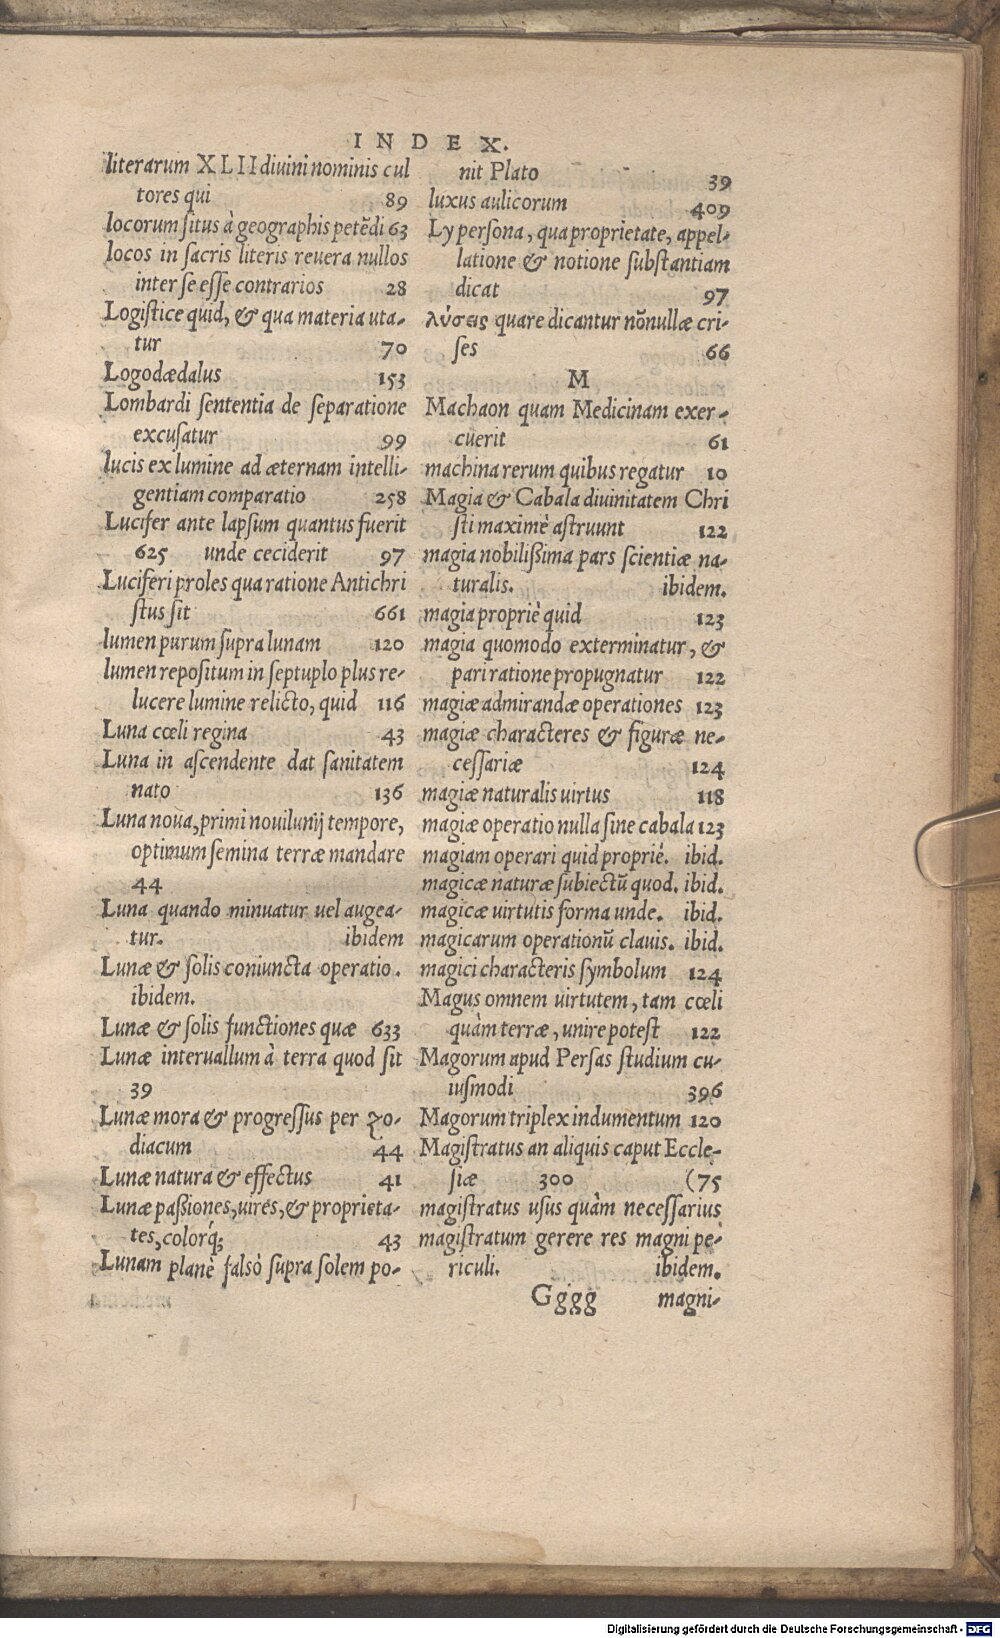 INDEX.
literarum XLII diuini nominis cul
tores qui 89
locorum ſitus à geographis petēdi 63
locos in ſacris literis reuera nullos
inter ſe eſſe contrarios 28
Logiſtice quid, & qua materia uta-
tur 70
Logodædalus 153
Lombardi ſententia de ſeparatione
excuſatur 99
lucis ex lumine ad æternam intelli-
gentiam comparatio 258
Lucifer ante lapſum quantus fuerit
625 unde ceciderit 97
Luciferi proles qua ratione Antichri
ſtus ſit 661
lumen purum ſupra lunam 120
lumen repoſitum in ſeptuplo plus re-
lucere lumine relicto, quid 116
Luna cœli regina 43
Luna in aſcendente dat ſanitatem
nato 136
Luna noua, primi nouilunij tempore,
optimum ſemina terræ mandare
44
Luna quando minuatur uel augea-
tur. ibidem
Lunæ & ſolis coniuncta operatio.
ibidem.
Lunæ & ſolis functiones quæ 633
Lunæ interuallum à terra quod ſit
39
Lunæ mora & progreſſus per zo-
diacum 44
Lunæ natura & effectus 41
Lunæ paßiones, uires, & proprieta-
tes, colorq́; 43
Lunam planè falsò ſupra ſolem po-
nit Plato 39
luxus aulicorum 409
Ly perſona, qua proprietate, appel-
latione & notione ſubſtantiam
dicat 97
λύσεις quare dicantur nōnullæ cri-
ſes 66
M
Machaon quam Medicinam exer-
cuerit 61
machina rerum quibus regatur 10
Magia & Cabala diuinitatem Chri
ſti maximè aſtruunt 122
magia nobilißima pars ſcientiæ na-
turalis. ibidem.
magia propriè quid 123
magia quomodo exterminatur, &
pari ratione propugnatur 122
magiæ admirandæ operationes 123
magiæ characteres & figuræ ne-
ceſſariæ 124
magiæ naturalis uirtus 118
magiæ operatio nulla ſine cabala 123
magiam operari quid propriè. ibid.
magicæ naturæ ſubiectū quod. ibid.
magicæ uirtutis forma unde. ibid.
magicarum operationū clauis. ibid.
magici characteris ſymbolum 124
Magus omnem uirtutem, tam cœli
quàm terræ, unire poteſt 122
Magorum apud Perſas ſtudium cu-
iuſmodi 396
Magorum triplex indumentum 120
Magiſtratus an aliquis caput Eccle-
ſiæ 300 (75
magiſtratus uſus quàm neceſſarius
magiſtratum gerere res magni pe-
riculi. ibidem.
Gggg magni-
Digitalisierung gefördert durch die Deutsche Forschungsgemeinschaft - DFG